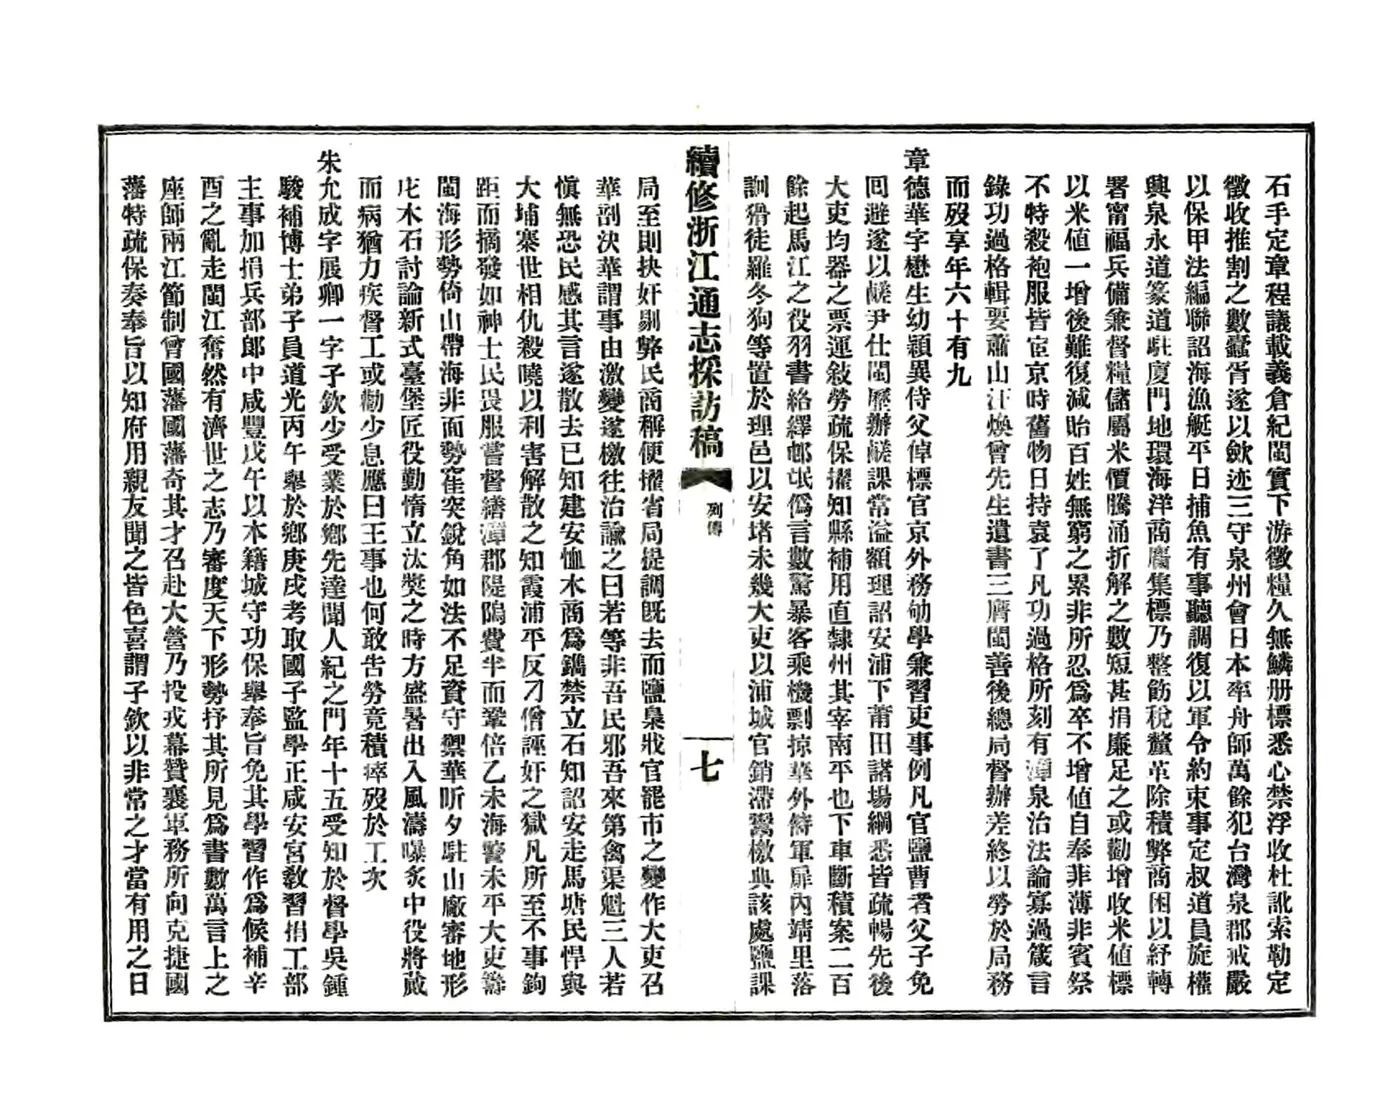 石手定章程議載義倉紀閩實下游徵糧久無鱗册標悉心禁浮收杜訛索勒定
徵收推割之數蠹胥遂以斂迹三守泉州會日本率舟師萬餘犯台灣泉郡戒嚴
以保甲法編聯詔海漁艇平日捕魚有事聽調復以軍令約束事定叔道員旋權
興泉永道篆道駐廈門地環海洋商廛集標乃整飭稅釐革除積弊商困以紓轉
署甯福兵備兼督糧儲屬米價騰涌折解之數短甚捐廉足之或勸增收米値標
以米値一增後難復減貽百姓無窮之累非所忍爲卒不增値自奉非薄非賓祭
不特殺袍服皆宦京時舊物日持袁了凡功過格所刻有漳泉治法論寡過箴言
錄功過格輯要蕭山汪煥曾先生遺書三膺閩善後總局督辦差終以勞於局務
而歿享年六十有九
章德華字懋生幼穎異侍父倬標官京外務劬學兼習吏事例凡官鹽曹者父子免
回避遂以鹺尹仕閩歷辦鹺課常溢額理詔安浦下莆田諸場綱悉皆疏暢先後
大吏均器之票運敍勞疏保擢知縣補用直隸州其宰南平也下車斷積案二百
餘起馬江之役羽書絡繹邨氓僞言數驚暴客乘機剽掠華外偫軍扉內靖里落
訓猾徒羅冬狗等置於理邑以安堵未幾大吏以浦城官銷滯鬻檄典該處鹽課
續修浙江通志採訪稿
列傳
七
局至則抉奸剔弊民商稱便擢省局提調旣去而鹽梟戕官罷市之變作大吏召
華剖決華謂事由激變遂檄往治諭之曰若等非吾民邪吾來第禽渠魁三人若
愼無恐民感其言遂散去已知建安恤木商爲鐫禁立石知詔安走馬塘民悍與
大埔寨世相仇殺曉以利害解散之知霞浦平反刁僧誣奸之獄凡所至不事鉤
距而摘發如神士民畏服嘗督繕漳郡隄隖費半而鞏倍乙未海警未平大吏籌
閩海形勢倚山帶海非面勢萑突銳角如法不足資守禦華昕夕駐山廠審地形
庀木石討論新式臺堡匠役勤惰立汰獎之時方盛暑出入風濤曝炙中役將蕆
而病猶力疾督工或勸少息應曰王事也何敢告勞竟積瘁歿於工次
朱允成字展卿一字子欽少受業於鄉先達聞人紀之門年十五受知於督學吳鍾
駿補博士弟子員道光丙午舉於鄉庚戌考取國子監學正咸安宮敎習捐工部
主事加捐兵部郎中咸豐戊午以本籍城守功保舉奉旨免其學習作爲候補辛
酉之亂走閩江奮然有濟世之志乃審度天下形勢抒其所見爲書數萬言上之
座師兩江節制曾國藩國藩奇其才召赴大營乃投戎幕贊襄軍務所向克捷國
藩特疏保奏奉旨以知府用親友聞之皆色喜謂子欽以非常之才當有用之日